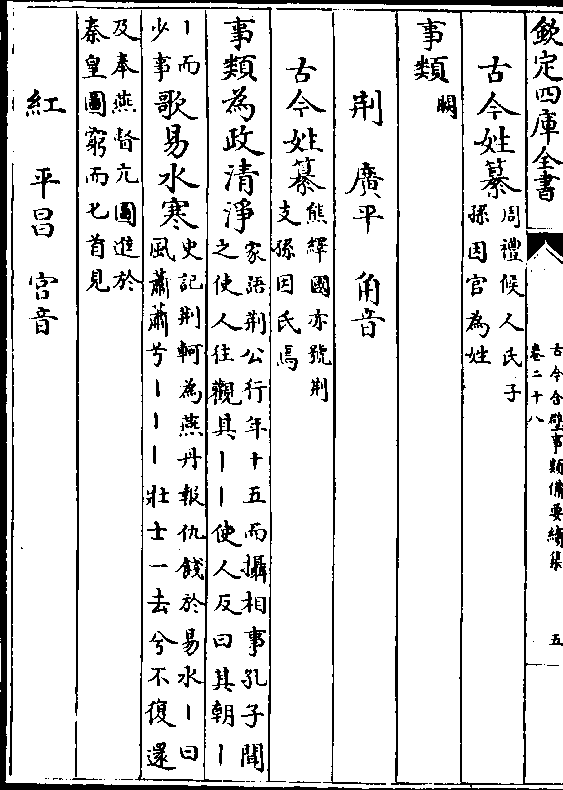 欽定四庫全書
古今合璧事類備要續集
卷二十八
五
古今姓纂周禮候人氏子
孫因官為姓
事類闕
荆 廣平 角音
古今姓纂熊繹國亦號荆
支孫因氏焉
事類為政清淨家語荆公行年十五而攝相事孔子聞
之使人往觀其丨丨使人反曰其朝丨
丨而
少事歌易水寒史記荆軻為燕丹報仇餞於易水丨曰
風蕭蕭兮丨丨丨壯士一去兮不復還
及奉燕督亢圖進於
秦皇圖窮而匕首見
紅 平昌 宫音